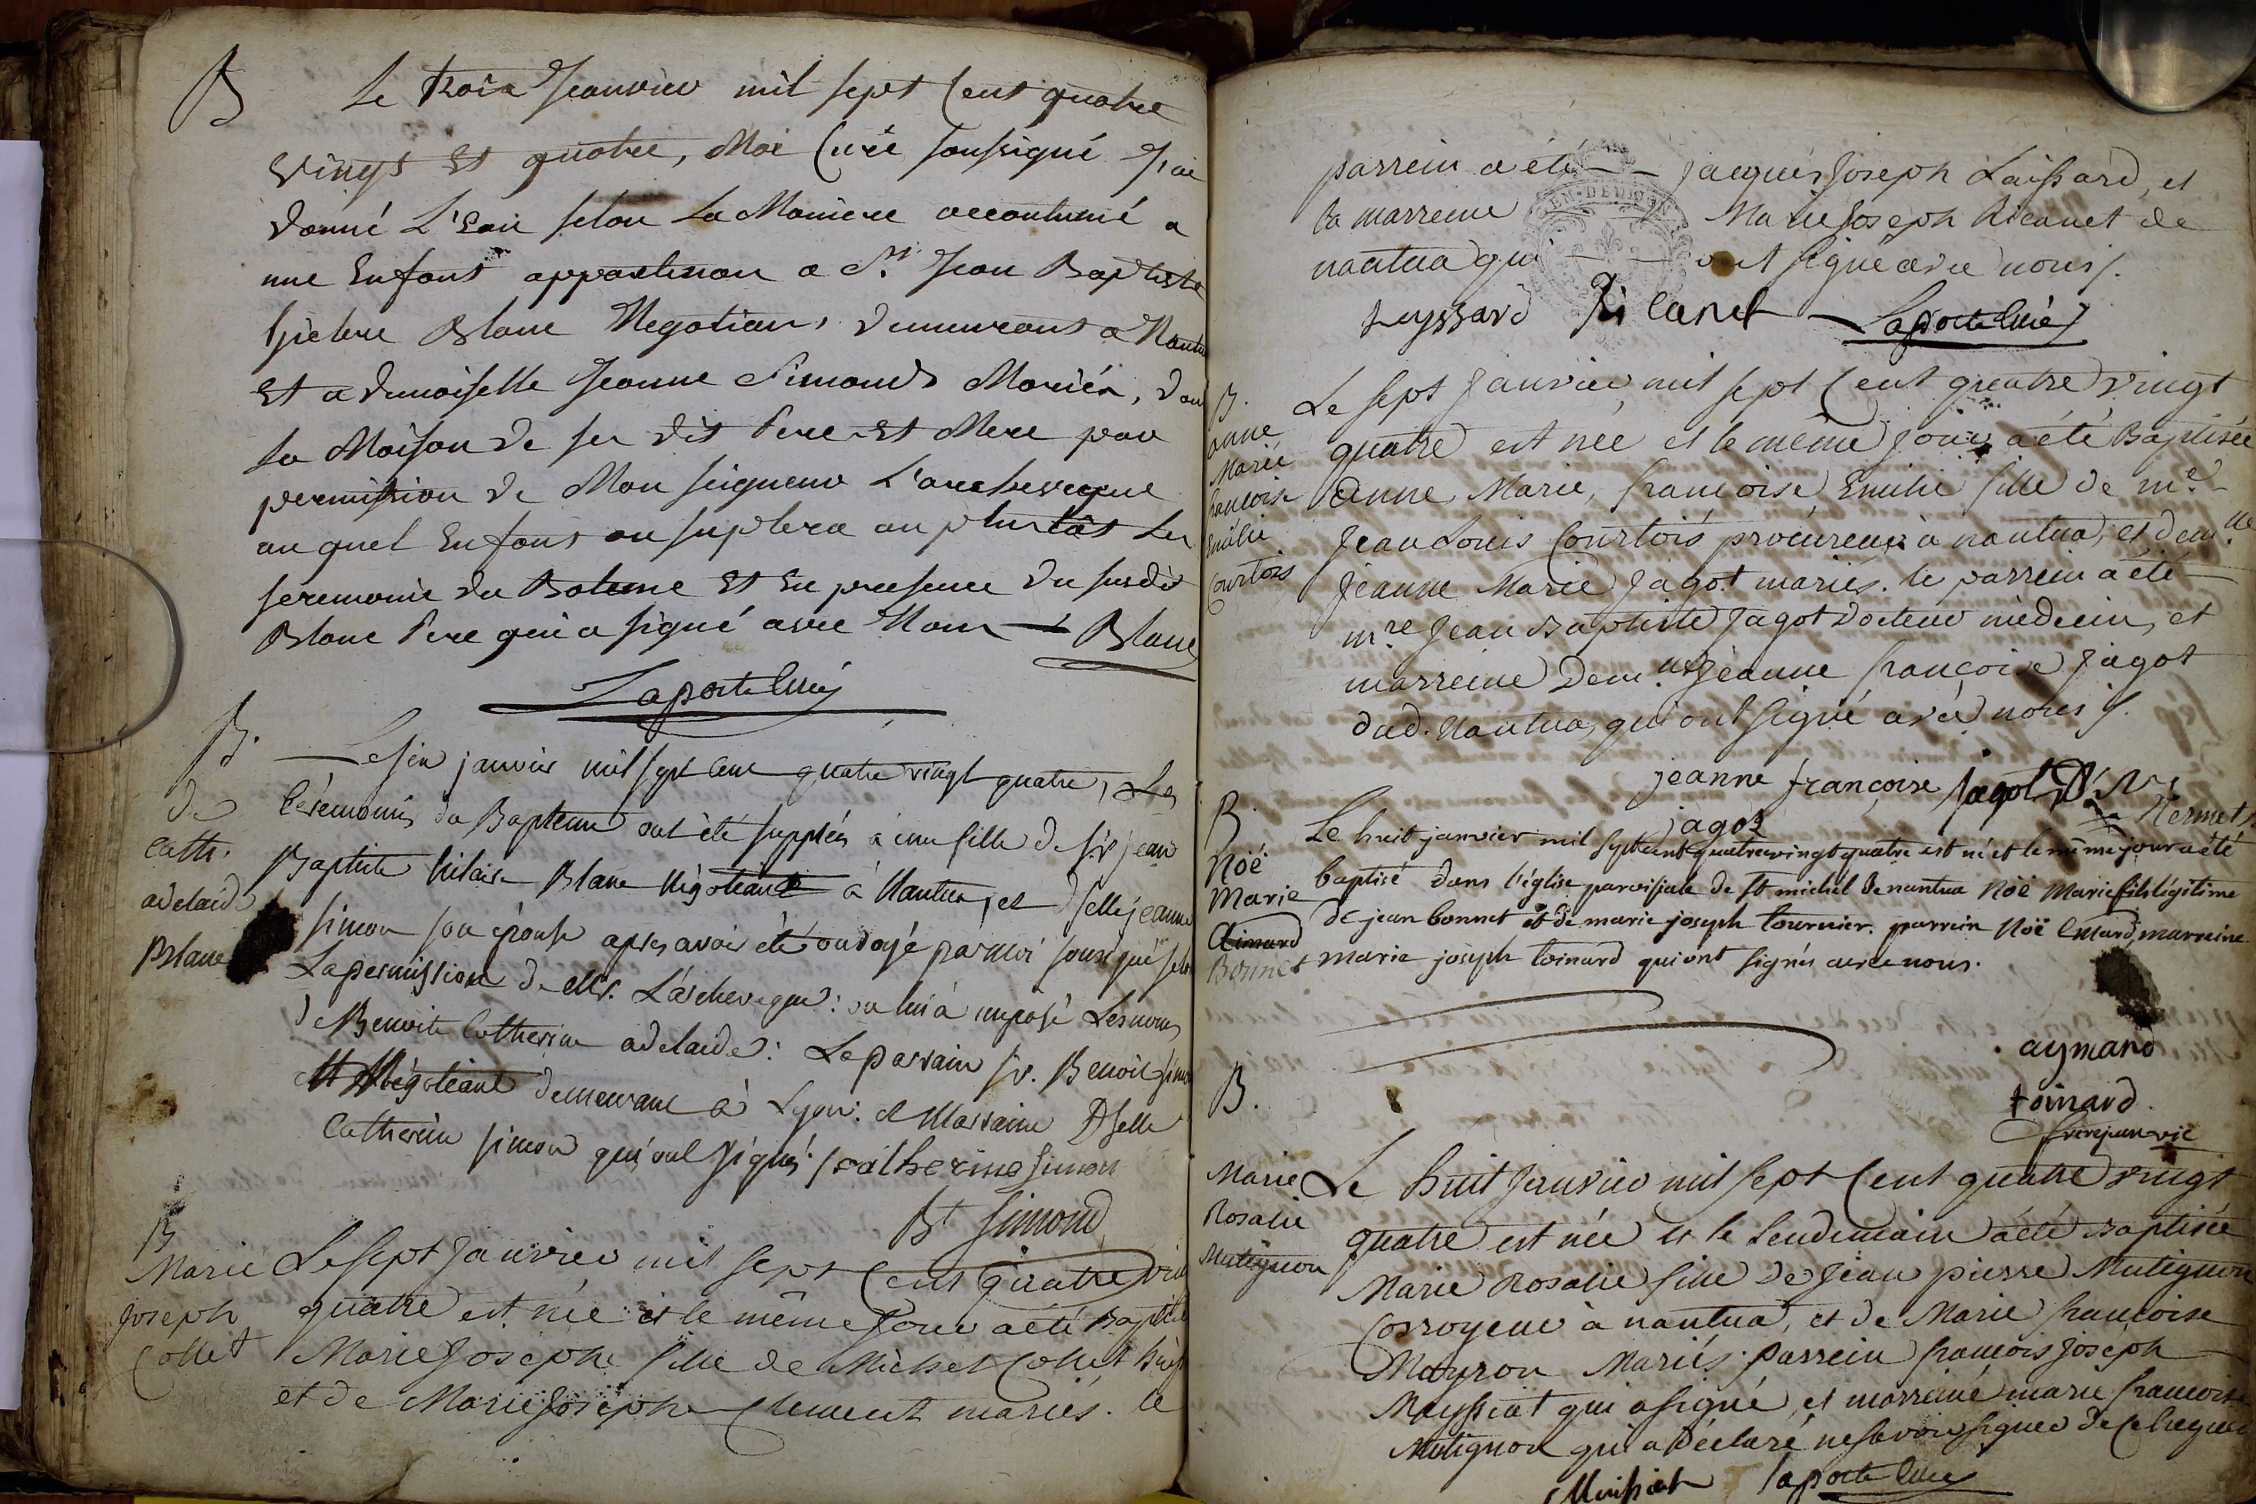 B
Le trois Jeanvier mil sept Cent quatre
vingt et quatre, Moi Curé soussigné J'ai
donné L'Eau selon La Maniere accoutumé a
une Enfant appartenan a Sr. Jean Baptiste
hielere Blanc Negotiant, demeurant a Nantua
Et a demoiselle Jeanne Simond Mariés, dans
La Maison de ses dit Pere et Mere par
permission de Mon seigneur L'archeveque
au quel Enfant on suplera au plus tôt Les
seremonie du Bateme Et En presence du susdit
Blanc Pere qui a signé avec Nous Blanc
Laporte Curé
B.
de
Cath.
adelaide
Blanc
Le six janvier mil sept cent quatre vingt quatre, Les
Cérémonies du Baptême ont été suppléés à une fille de sr. jean
Baptiste hilaire Blanc Négotiant à Nantua, et dselle jeanne
simon son épouse apres avoir été ondoyé par moi soussigné selon
La permission de Mgr. L'archeveque: on lui a imposé Les noms
de Benoite Catherine adelaide: Le parrain sr. Benoit simon
Négotiant demeurant à Lyon: et Marraine Dselle
Catherine simon qui ont signés. catherine simon
Bt simond
B
Marie
Joseph
Collet
Le sept Janvier mil sept Cent quatre vingt
quatre est née et le même Jour a été Baptisée
Marie Josephe fille de Michel Collet
et de Marie Josephe Clement mariés. le
parrein a été Jacques Joseph Laissard, et
la marreine Marie Joseph Ricanet de
nantua qui ont signé avec nous.
Leyssard Ricanet Laporte Curé
B.
Anne
Marie
françoise
Emilie
Courtois
Le sept Janvier mil sept Cent quatre vingt
quatre est née et le même jour a été Baptisée
Anne Marie, françoise Emilie fille de me.
Jean Louis Courtois procureur à nantua, et demlle
Jeanne Marie Jagot mariés. le parrein a été
mre Jean Baptiste Jagot Docteur médecin, et
marreine Demlle Jeanne françoise Jagot
dud. Nantua, qui ont signé avec nous.
jeanne françoise jagot
jagot
B.
Nöé
Marie
Aimard
Bonnet
Le huit janvier mil sept cent quatrevingt quatre est né et le même jour a été
baptisé dans l'église paroissiale de St michel de nantua Nöé Marie fils légitime
de jean bonnet et de marie joseph tournier. parrein Nöé Emard, marreine
marie joseph toinard qui ont signés avec nous.
aymard
toinard
frerejean vic
B.
Marie
Rosalie
Mutignon
Le huit Janvier mil sept Cent quatre vingt
quatre est née et le lendemain a été Baptisée
Marie Rosalie fille de Jean pierre Mutignon
Corroyeur à nantua, et de Marie francoise
Mayron Mariés. Parrein françois Joseph
Maissiat qui a signé, et marreine marie francoise
Mutignon qui a déclaré ne savoir signer de ce requise
Maissiat Laporte Curé